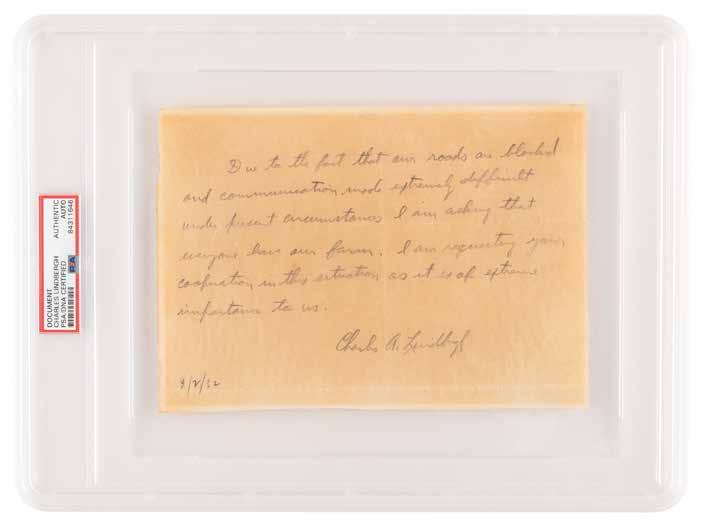 DOCUMENT
CHARLES LINDBERGH
PSA/DNA CERTIFIED
AUTHENTIC
AUTO
84311646
Due to the fact that our roads are blocked
and communication made extremely difficult
under present circumstances I am asking that
everyone leave our farm. I am requesting your
cooperation in this situation as it is of extreme
importance to us.
Charles A. Lindbergh